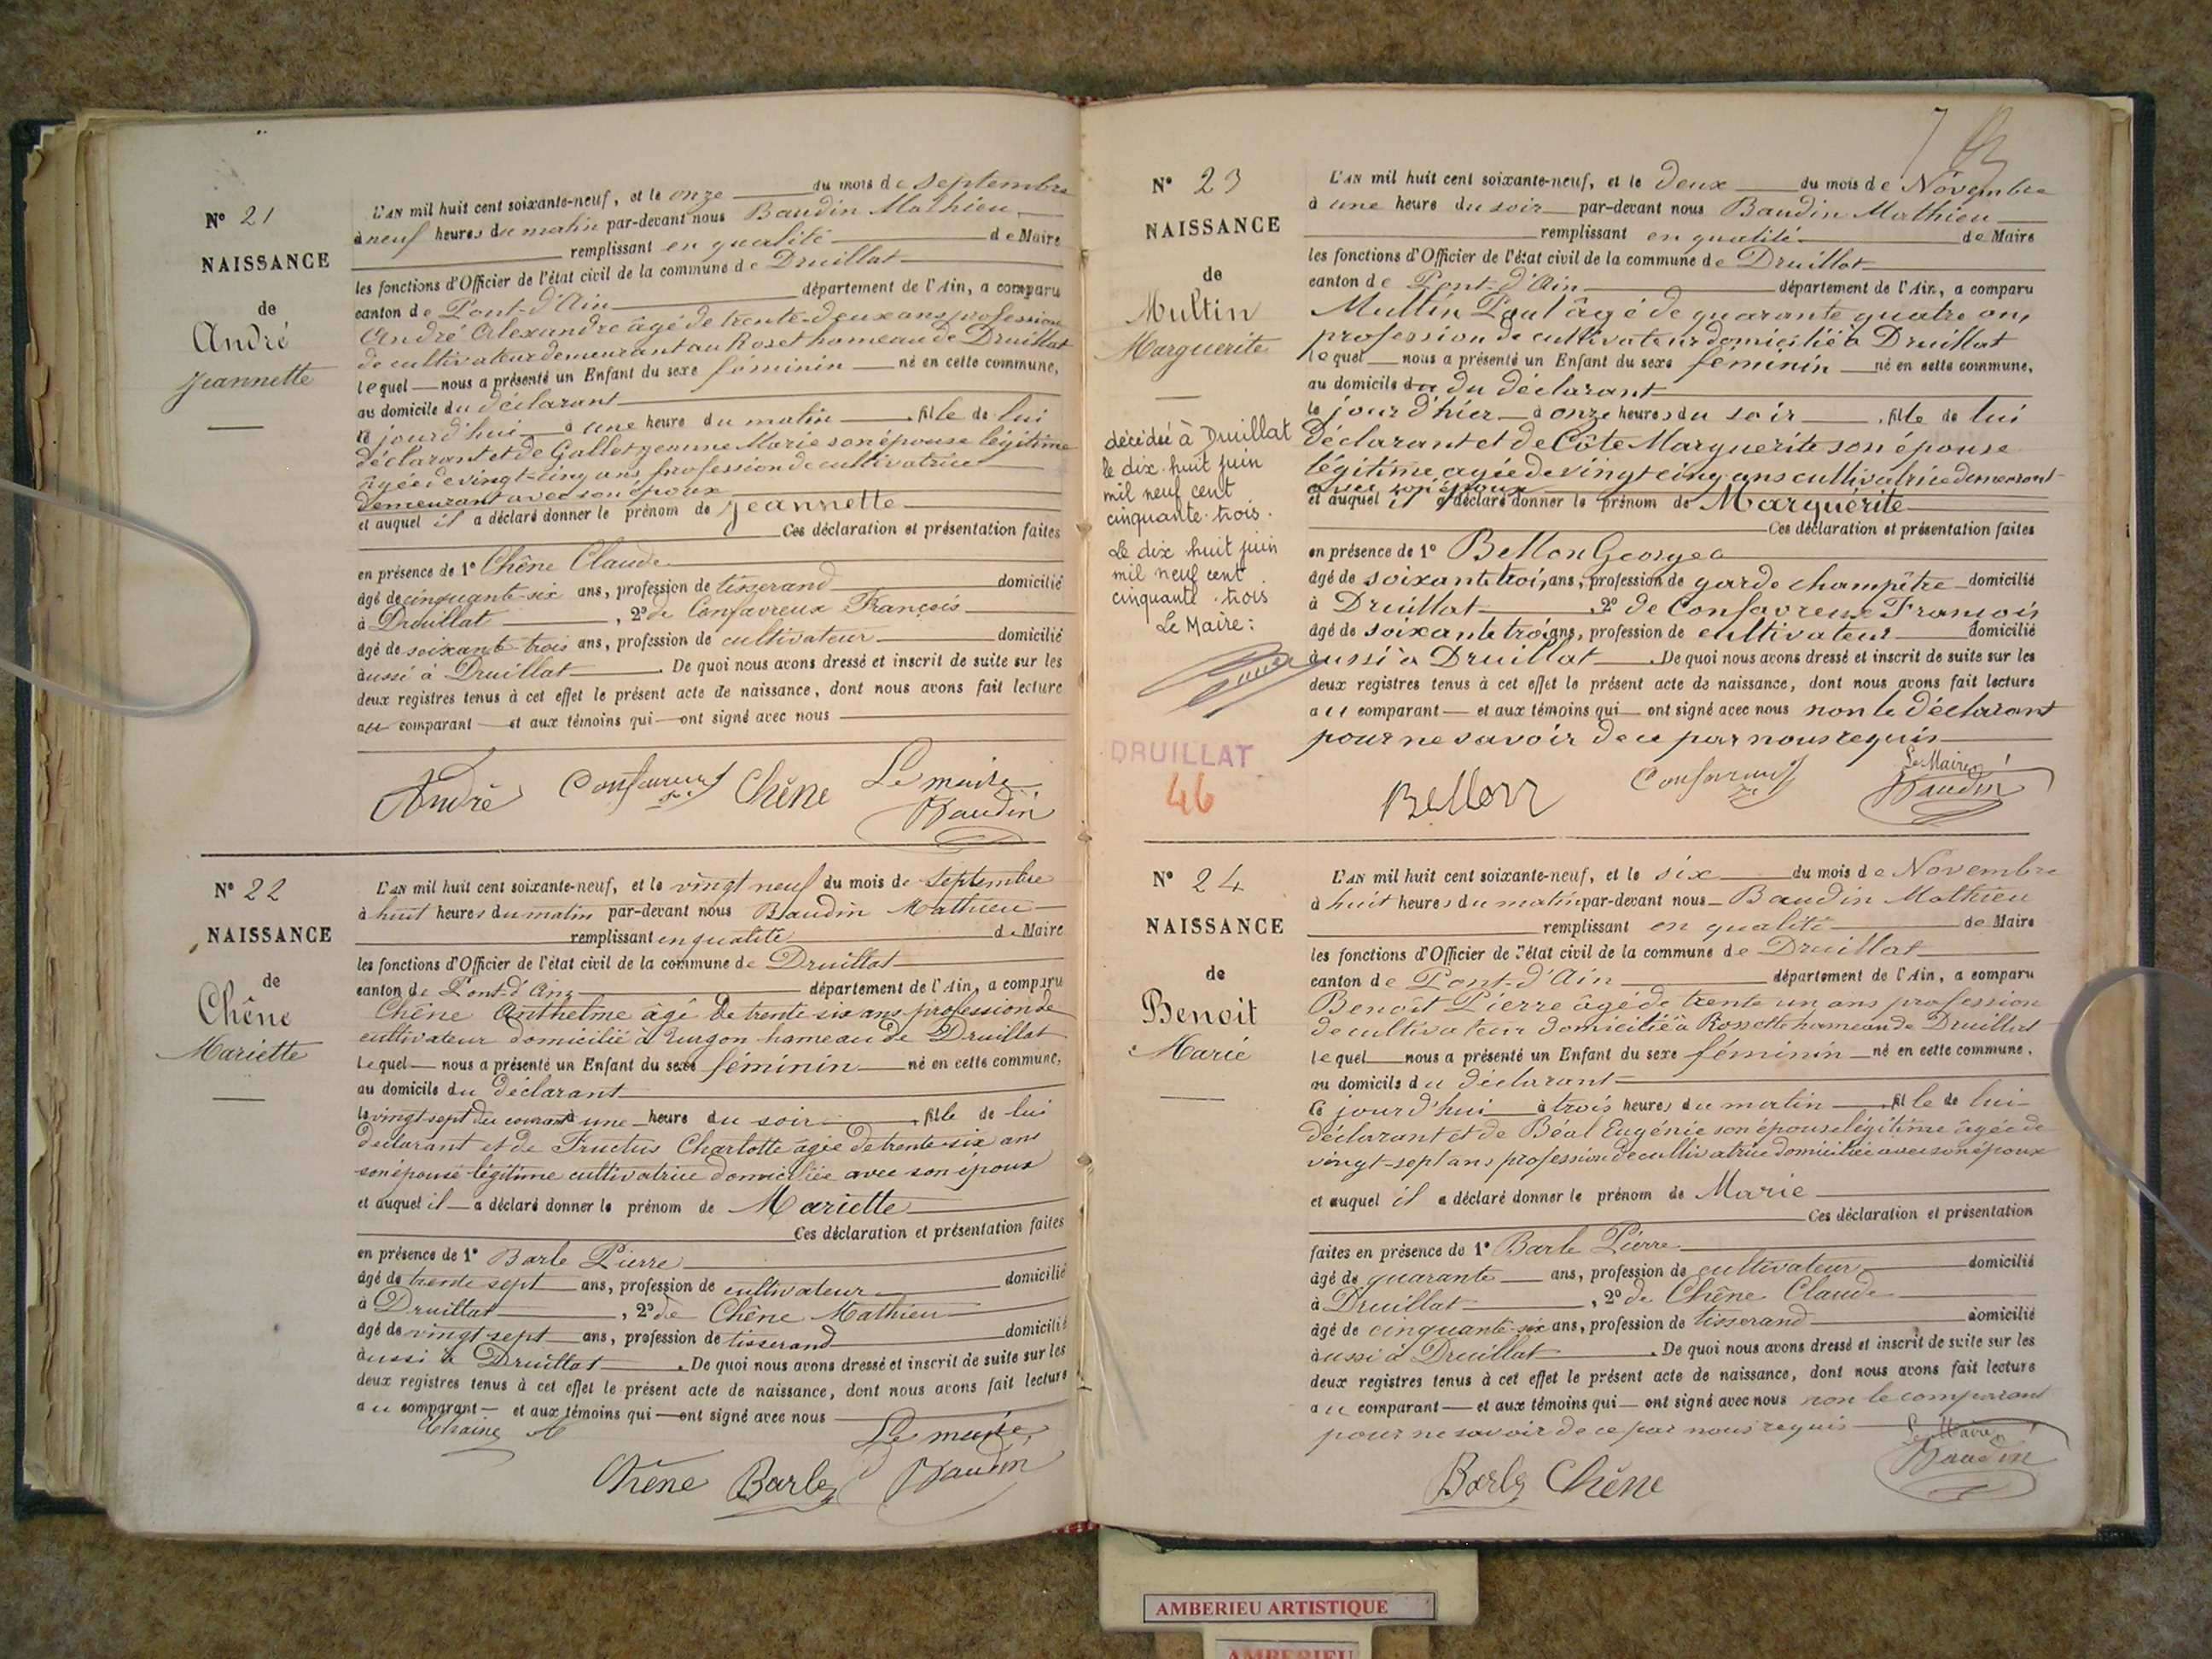 N° 21
NAISSANCE
de
André
Jeannette
L'AN mil huit cent soixante-neuf, et le onze du mois de Septembre
à neuf heures du matin par-devant nous Baudin Mathieu
remplissant en qualité de Maire
les fonctions d'Officier de l'état civil de la commune de Druillat
canton de Pont-d'Ain département de l'Ain, a comparu
André Alexandre âgé de trente-deux ans profession
de cultivateur demeurant au Roset hameau de Druillat
lequel nous a présenté un Enfant du sexe féminin né en cette commune,
au domicile du déclarant
ce jourd'hui à une heure du matin fille de lui
déclarant et de Gallet Jeanne Marie son épouse légitime
âgée de vingt-cinq ans, profession de cultivatrice
demeurant avec son époux
et auquel il a déclaré donner le prénom de Jeannette
Ces déclaration et présentation faites
en présence de 1° Chêne Claude
âgé de cinquante-six ans, profession de tisserand domicilié
à Druillat, 2° de Confavreux François
âgé de soixante trois ans, profession de cultivateur domicilié
aussi à Druillat. De quoi nous avons dressé et inscrit de suite sur les
deux registres tenus à cet effet le présent acte de naissance, dont nous avons fait lecture
au comparant et aux témoins qui ont signé avec nous
André Confavreux Chêne Le maire
Baudin
N° 22
NAISSANCE
de
Chêne
Mariette
L'AN mil huit cent soixante-neuf, et le vingt neuf du mois de Septembre
à huit heures du matin par-devant nous Baudin Mathieu
remplissant en qualité de Maire
les fonctions d'Officier de l'état civil de la commune de Druillat
canton de Pont-d'Ain département de l'Ain, a comparu
Chêne Anthelme âgé de trente six ans profession de
cultivateur domicilié à Turgon hameau de Druillat
Lequel nous a présenté un Enfant du sexe féminin né en cette commune,
au domicile du déclarant
le vingt sept du courant à une heure du soir fille de lui
déclarant et de Fructus Charlotte âgée de trente-six ans
son épouse légitime cultivatrice domiciliée avec son époux
et auquel il a déclaré donner le prénom de Mariette
Ces déclaration et présentation faites
en présence de 1° Barle Pierre
âgé de trente sept ans, profession de cultivateur domicilié
à Druillat, 2° de Chêne Mathieu
âgé de vingt-sept ans, profession de tisserand domicilié
aussi à Druillat. De quoi nous avons dressé et inscrit de suite sur les
deux registres tenus à cet effet le présent acte de naissance, dont nous avons fait lecture
au comparant et aux témoins qui ont signé avec nous
Le maire,
Chêne Barle Baudin
N° 23
NAISSANCE
de
Multin
Marguerite
décédée à Druillat
le dix-huit juin
mil neuf cent
cinquante-trois.
Le dix huit juin
mil neuf cent
cinquante-trois
Le Maire:
DRUILLAT
46
L'AN mil huit cent soixante-neuf, et le deux du mois de Novembre
à une heure du soir par-devant nous Baudin Mathieu
remplissant en qualité de Maire
les fonctions d'Officier de l'état civil de la commune de Druillat
canton de Pont-d'Ain département de l'Ain, a comparu
Multin Paul âgé de quarante quatre ans,
profession de cultivateur domicilié à Druillat
lequel nous a présenté un Enfant du sexe féminin né en cette commune,
au domicile du déclarant
le jour d'hier à onze heures du soir fille de lui
déclarant et de Côte Marguerite son épouse
légitime agée de vingt cinq ans cultivatrice demeurant
avec son époux
et auquel il a déclaré donner le prénom de Marguérite
Ces déclaration et présentation faites
en présence de 1° Bellon Georges
âgé de soixante trois ans, profession de garde champêtre domicilié
à Druillat, 2° de Confavreux François
âgé de soixante trois ans, profession de cultivateur domicilié
aussi à Druillat. De quoi nous avons dressé et inscrit de suite sur les
deux registres tenus à cet effet le présent acte de naissance, dont nous avons fait lecture
au comparant et aux témoins qui ont signé avec nous non le déclarant
pour ne savoir de ce par nous requis
Bellon Confavreux Le Maire
Baudin
N° 24
NAISSANCE
de
Benoit
Marie
L'AN mil huit cent soixante-neuf, et le six du mois de Novembre
à huit heures du matin par-devant nous Baudin Mathieu
remplissant en qualité de Maire
les fonctions d'Officier de l'état civil de la commune de Druillat
canton de Pont-d'Ain département de l'Ain, a comparu
Benoît Pierre âgé de trente un ans profession
de cultivateur domicilié à Rossette hameau de Druillat
lequel nous a présenté un Enfant du sexe féminin né en cette commune,
au domicile du déclarant
ce jourd'hui à trois heures du matin fille de lui
déclarant et de Béal Eugénie son épouse légitime âgée de
vingt-sept ans profession de cultivatrice domiciliée avec son époux
et auquel il a déclaré donner le prénom de Marie
Ces déclaration et présentation
faites en présence de 1° Barle Pierre
âgé de quarante ans, profession de cultivateur domicilié
à Druillat, 2° de Chêne Claude
âgé de cinquante-six ans, profession de tisserand domicilié
aussi à Druillat. De quoi nous avons dressé et inscrit de suite sur les
deux registres tenus à cet effet le présent acte de naissance, dont nous avons fait lecture
au comparant et aux témoins qui ont signé avec nous non le comparant
pour ne savoir de ce par nous requis
Le Maire
Barle Chêne Baudin
AMBERIEU ARTISTIQUE
AMBERIEU